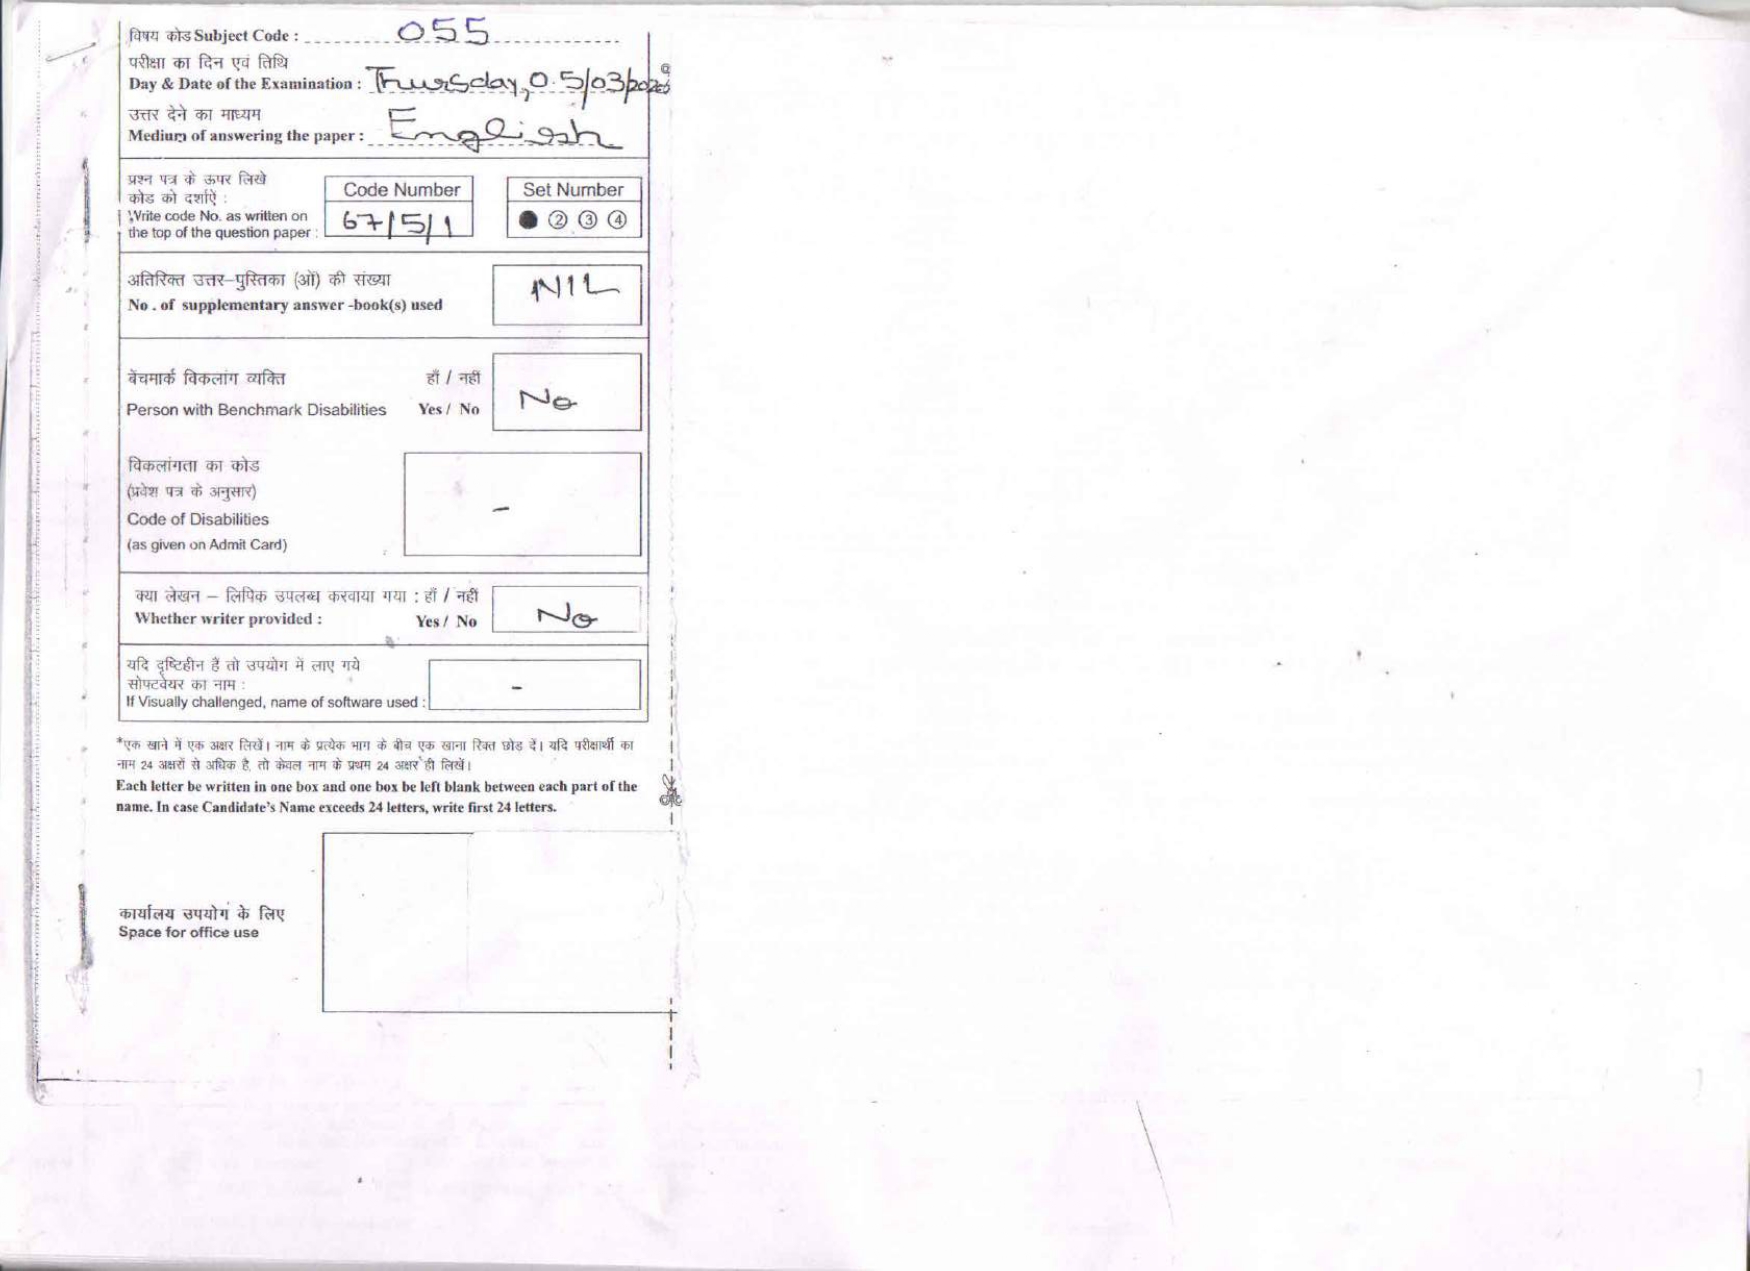 विषय कोड Subject Code : 055
परीक्षा का दिन एवं तिथि
Day & Date of the Examination : Thursday, 05/03/2020
उत्तर देने का माध्यम
Medium of answering the paper : English
प्रश्न पत्र के ऊपर लिखे
कोड को दर्शाऐं :
Write code No. as written on
the top of the question paper :
Code Number
67/5/1
Set Number
● ② ③ ④
अतिरिक्त उत्तर-पुस्तिका (ओं) की संख्या
No . of supplementary answer -book(s) used
NIL
बेंचमार्क विकलांग व्यक्ति हाँ / नहीं
Person with Benchmark Disabilities Yes / No
No
विकलांगता का कोड
(प्रवेश पत्र के अनुसार)
Code of Disabilities
(as given on Admit Card)
-
क्या लेखन – लिपिक उपलब्ध करवाया गया : हाँ / नहीं
Whether writer provided : Yes / No
No
यदि दृष्टिहीन हैं तो उपयोग में लाए गये
सोफ्टवेयर का नाम :
If Visually challenged, name of software used :
-
*एक खाने में एक अक्षर लिखें। नाम के प्रत्येक भाग के बीच एक खाना रिक्त छोड दें। यदि परीक्षार्थी का
नाम 24 अक्षरों से अधिक है, तो केवल नाम के प्रथम 24 अक्षर ही लिखें।
Each letter be written in one box and one box be left blank between each part of the
name. In case Candidate's Name exceeds 24 letters, write first 24 letters.
कार्यालय उपयोग के लिए
Space for office use